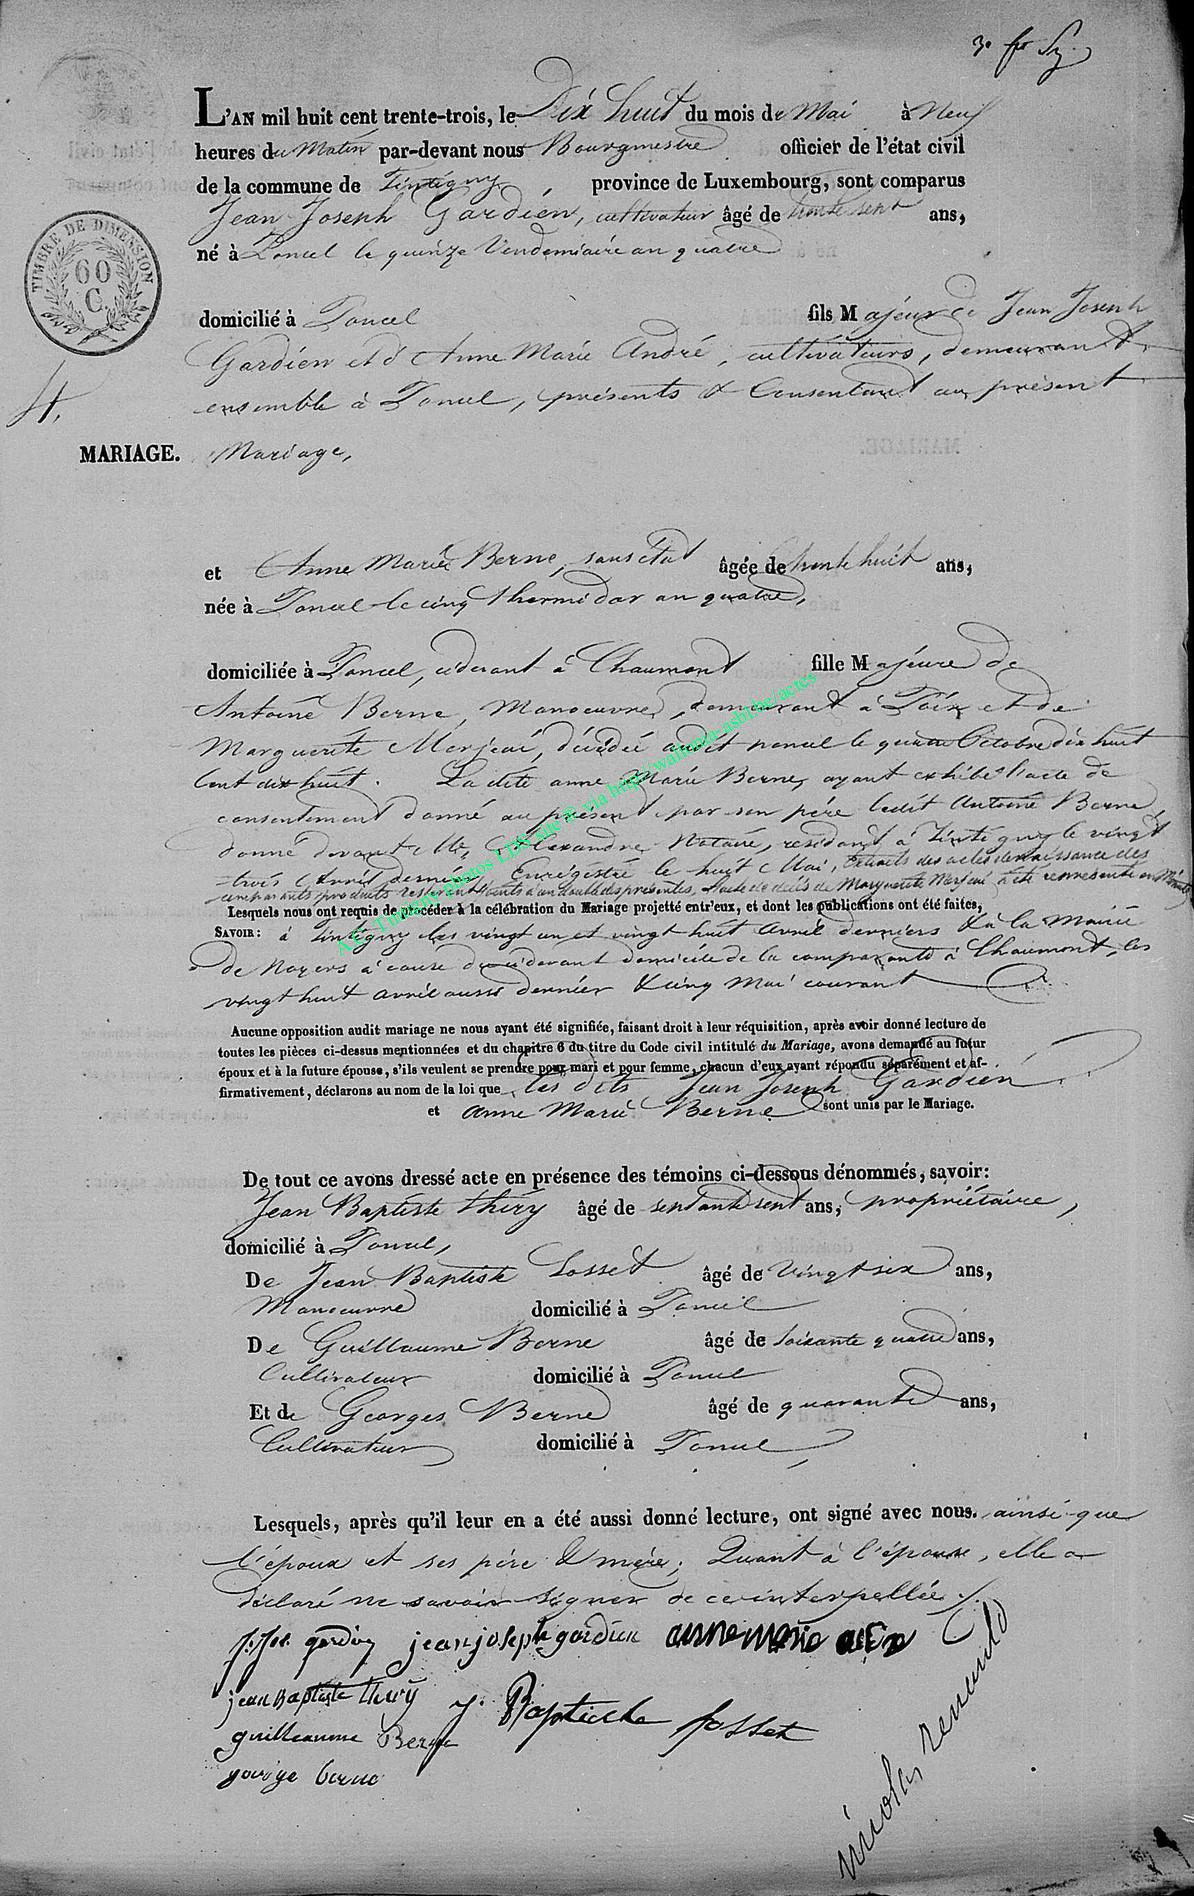 3e fr Sz
L'AN mil huit cent trente-trois, le Dix huit du mois de Mai à Neuf
heures du Matin par-devant nous Bourgmestre officier de l'état civil
de la commune de Tintigny, province de Luxembourg, sont comparus
Jean Joseph Gardien, cultivateur âgé de trente sept ans,
né à Poncel le quinze Vendemiaire an quatre
TIMBRE DE DIMENSION
60
C.
domicilié à Poncel fils Majeur de Jean Joseph
Gardien et d'Anne Marie André, cultivateurs, demeurant
ensemble à Poncel, présents & Consentant au présent
4.
MARIAGE. Mariage,
et Anne Marie Berne, sans état âgée de trente huit ans,
née à Poncel le cinq thermidor an quatre,
domiciliée à Poncel, ciderant à Chaumont fille Majeure de
Antoine Berne, Manoeuvre, demeurant à Poix et de
Marguerite Merjeai, décédée audit poncel le quatre Octobre dix huit
Cent dix huit. Ladite anne Marie Berne, ayant exhibé l'acte de
consentement donné au présent par son père ledit Antoine Berne,
donné devant Me. Alexandre Notaire, résidant à Tintigny le vingt
trois Avril dernier, Enregistré le huit Mai, Extraits des actes de naissance des
comparants produits resteront joints d'un double des présentes, l'acte de décès de Marguerite Merjeai a été représenté en Minute
Lesquels nous ont requis de procéder à la célébration du Mariage projetté entr'eux, et dont les publications ont été faites,
SAVOIR : à Tintigny les vingt un et vingt huit avril derniers & à la Mairie
de Noyers à cause du ciderant domicile de la comparante à Chaumont, les
vingt huit avril aussi dernier & cinq Mai courant
Aucune opposition audit mariage ne nous ayant été signifiée, faisant droit à leur réquisition, après avoir donné lecture de
toutes les pièces ci-dessus mentionnées et du chapitre 6 du titre du Code civil intitulé du Mariage, avons demandé au futur
époux et à la future épouse, s'ils veulent se prendre pour mari et pour femme, chacun d'eux ayant répondu séparément et af-
firmativement, déclarons au nom de la loi que les dits Jean Joseph Gardien
et Anne Marie Berne sont unis par le Mariage.
De tout ce avons dressé acte en présence des témoins ci-dessous dénommés, savoir :
Jean Baptiste thiry âgé de septante sept ans, propriétaire,
domicilié à Poncel,
De Jean Baptiste Fosset âgé de vingt six ans,
Manoeuvre domicilié à Poncel
De Guillaume Berne âgé de soixante quatre ans,
Cultivateur domicilié à Poncel
Et de Georges Berne âgé de quarante ans,
Cultivateur domicilié à Poncel,
Lesquels, après qu'il leur en a été aussi donné lecture, ont signé avec nous. ainsi que
l'époux et ses père & mère; Quant à l'épouse, elle a
déclaré ne savoir signer de ce interpellée.
j. jos. gardien jean joseph gardien anne marie
jean Baptiste thiry j. Baptiste fosset
guilleaume Berne
george berne
nicolas renauld
A.E. Tintigny photos LDS site @ via http://wallonia-asbl.be/actes